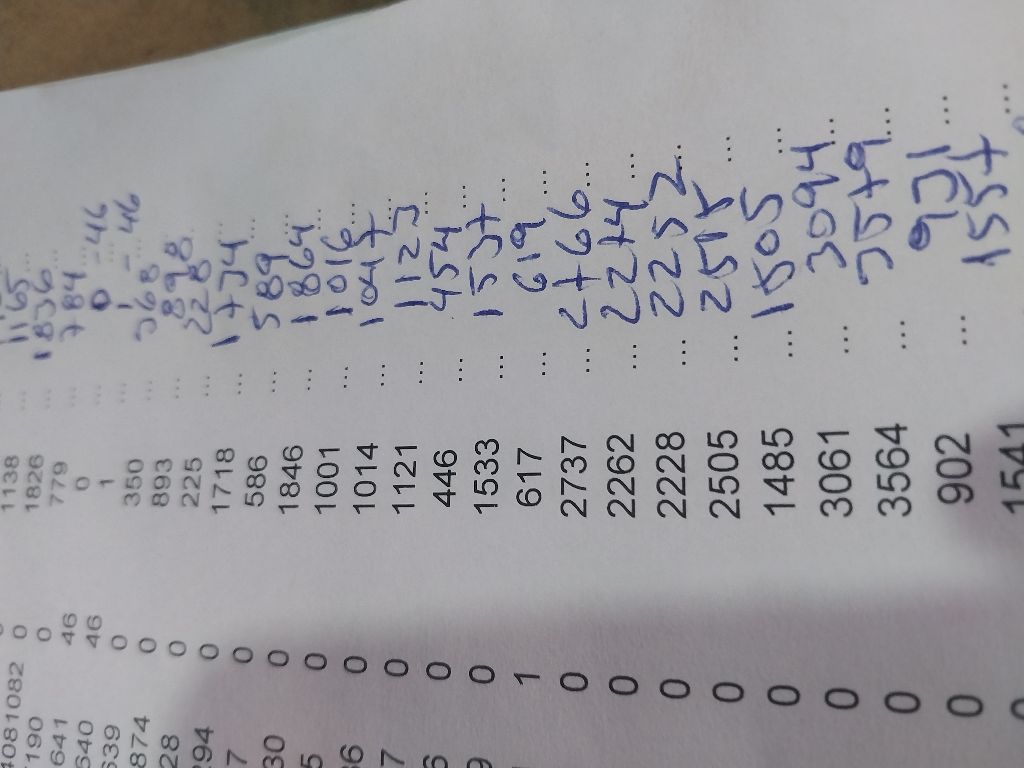 1138 ... 1165
4081082 0 1826 ... 1836
190 0 779 ... 784 ...
641 46 0 ... 0 -46
640 46 1 ... 1 -46
639 0 350 ... 368 ...
874 0 893 ... 898 ...
28 0 225 ... 228 ...
294 0 1718 ... 1734 ...
7 0 586 ... 589 ...
30 0 1846 ... 1864 ...
5 0 1001 ... 1016 ...
36 0 1014 ... 1047 ...
7 0 1121 ... 1123 ...
6 0 446 ... 454 ...
9 0 1533 ... 1537 ...
1 617 ... 619 ...
0 2737 ... 2766 ...
0 2262 ... 2274 ...
0 2228 ... 2252 ...
0 2505 ... ...
0 1485 ... 1505 ...
0 3061 ... 3094 ...
0 3564 ... 3579 ...
0 902 ... 931 ...
0 1541 ... 1557 ...